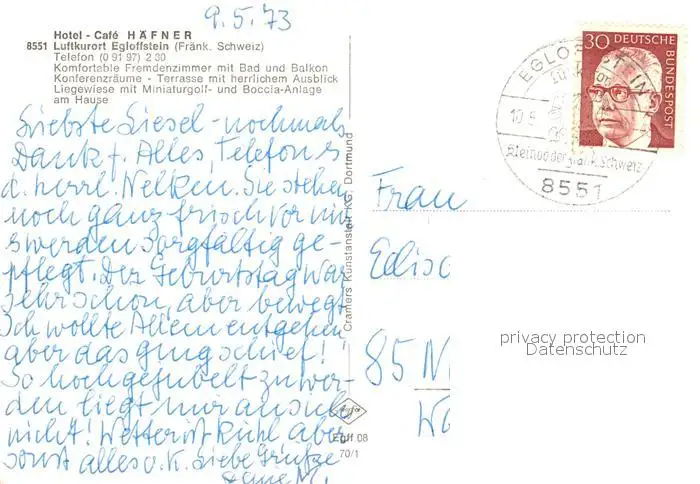 9.5.73
Hotel - Café HÄFNER
8551 Luftkurort Egloffstein (Fränk. Schweiz)
Telefon (0 91 97) 2 30
Komfortable Fremdenzimmer mit Bad und Balkon
Konferenzräume - Terrasse mit herrlichem Ausblick
Liegewiese mit Miniaturgolf- und Boccia-Anlage
am Hause
Liebste Liesel - nochmals
Dank f. Alles, Telefon u
d. herrl. Nelken. Sie stehen
noch ganz frisch vor mir
werden sorgfältig ge-
pflegt. Der Geburtstag war
sehr schön, aber bewegt
Ich wollte Allem entgehen
aber das ging schief!
So hochgejubelt zu wer-
den liegt mir an sich
nicht! Wetter ist kühl, aber
sonst alles o.K. Liebe Grüße
Cramers Kunstanstalt KG, Dortmund
Egff 08
70/1
30 DEUTSCHE BUNDESPOST
EGLOFFSTEIN
10.5
Kleinod der fränk. Schweiz
8551
Frau
85 N
privacy protection
Datenschutz